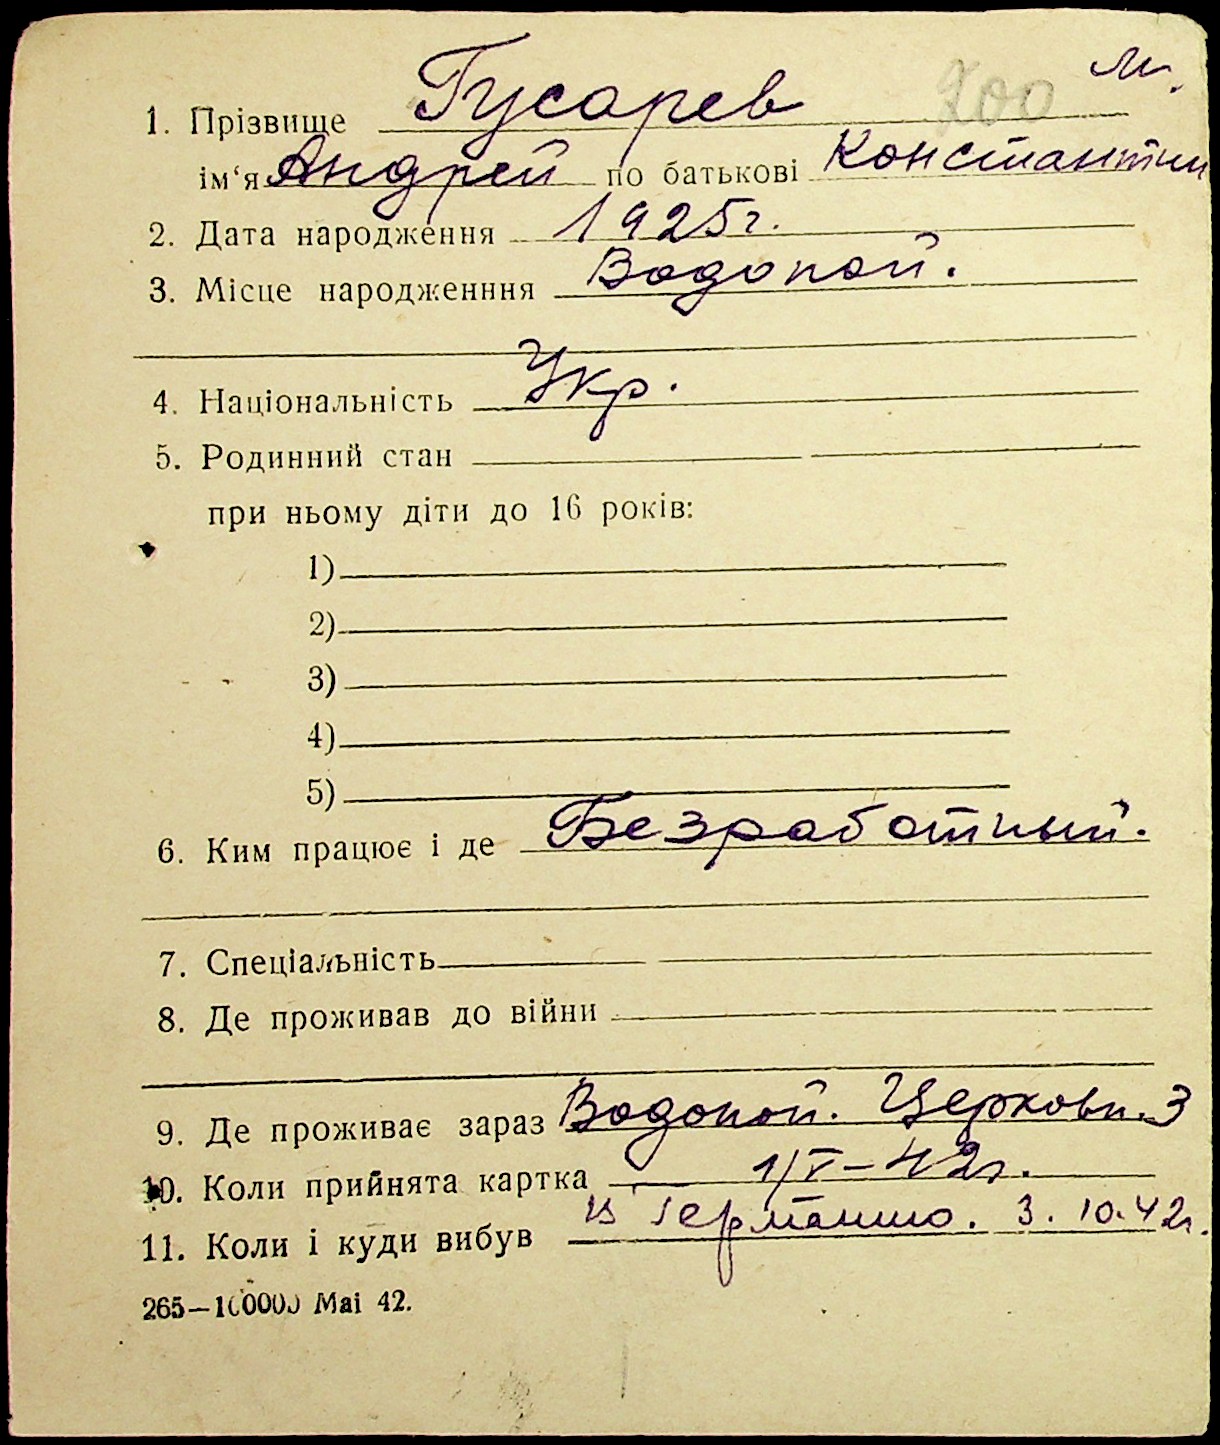 м.
200
1. Прізвище Гусарев
ім‘я Андрей по батькові Константин
2. Дата народження 1925г.
3. Місце народженння Водопой.
4. Національність Укр.
5. Родинний стан
при ньому діти до 16 років:
1)
2)
3)
4)
5)
6. Ким працює і де Безработный.
7. Спеціальність
8. Де проживав до війни
9. Де проживає зараз Водопой. Церковн. 3
10. Коли прийнята картка 1/V–42г.
11. Коли і куди вибув в Германию. 3.10.42г.
265—100000 Mai 42.